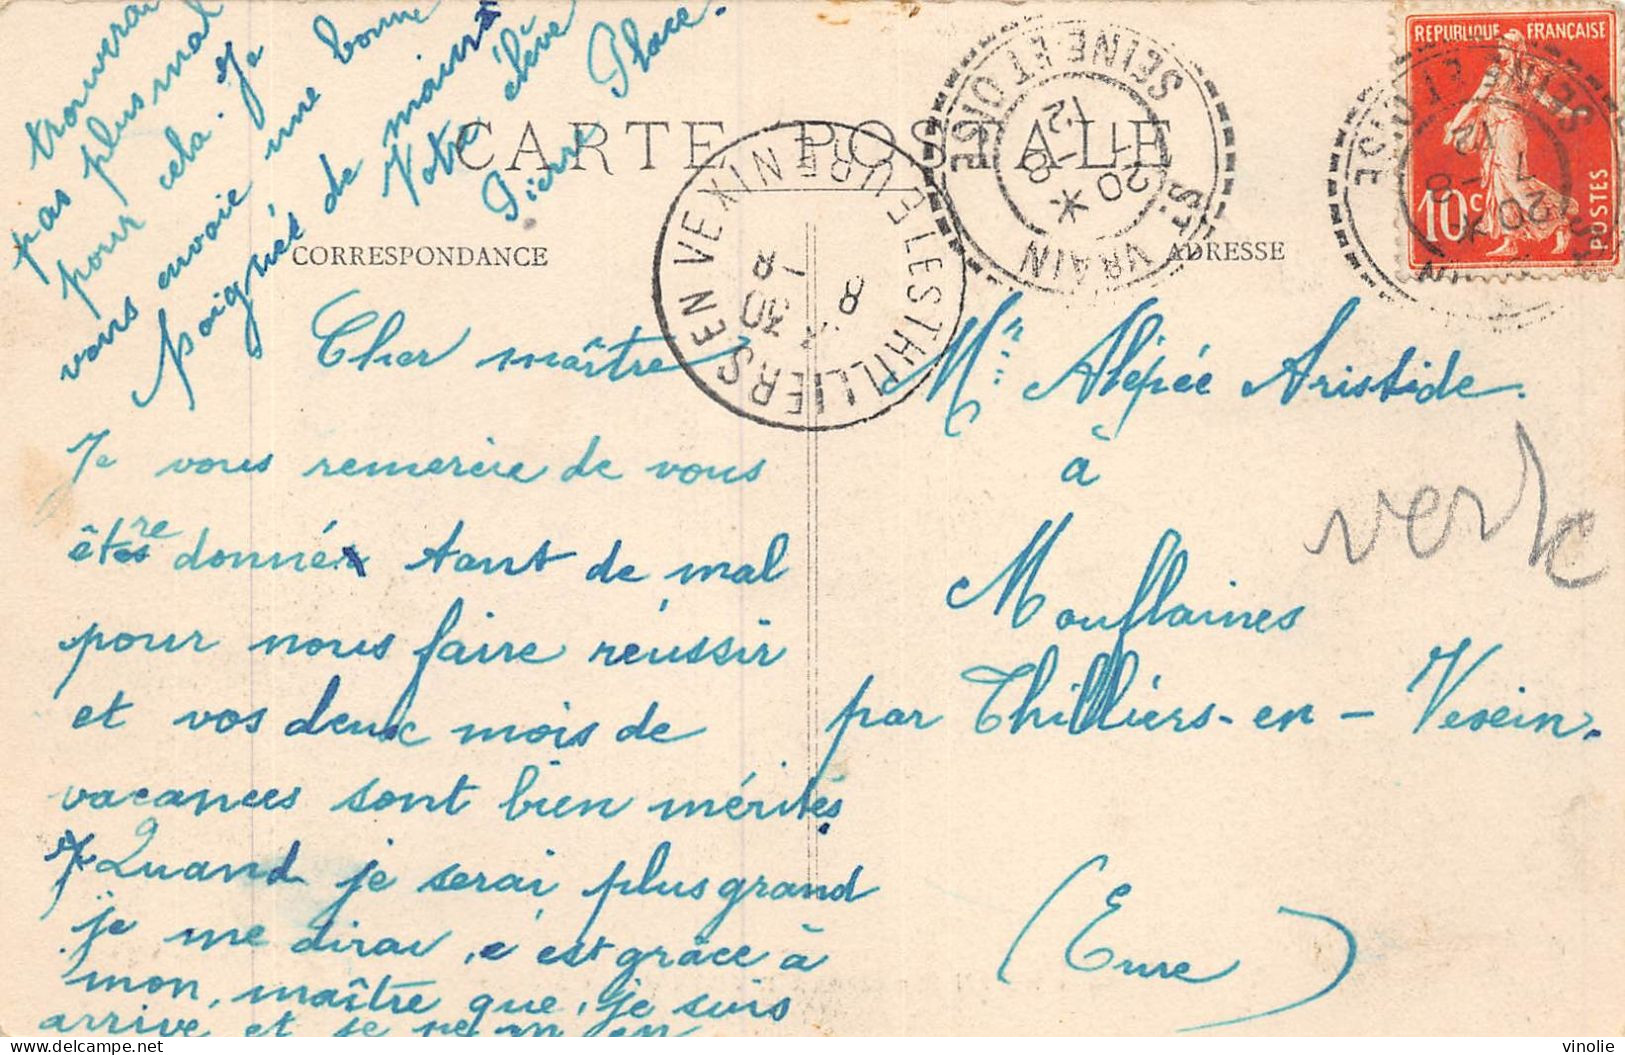 CARTE POSTALE
CORRESPONDANCE
ADRESSE
Cher maître
Je vous remercie de vous
être donné tant de mal
pour nous faire réussir
et vos deux mois de
vacances sont bien mérités.
Quand je serai plus grand
je me dirai, c'est grâce à
mon, maître que, je suis
arrivé et je ne m'en
trouverai
pas plus mal
pour cela. Je
vous envoie une bonne
poignée de mains
Votre élève
Pierre Place.
Mr: Alépée Aristide.
à
Mouflaines
par Thilliers-en-Vexin.
(Eure)
verte
REPUBLIQUE FRANÇAISE
10c
POSTES
ST VRAIN SEINE ET OISE
20
7 - 8
12
ST VRAIN SEINE ET OISE
20
7 - 8
12
LES THILLIERS EN VEXIN EURE
8
30 - 8
vinolie